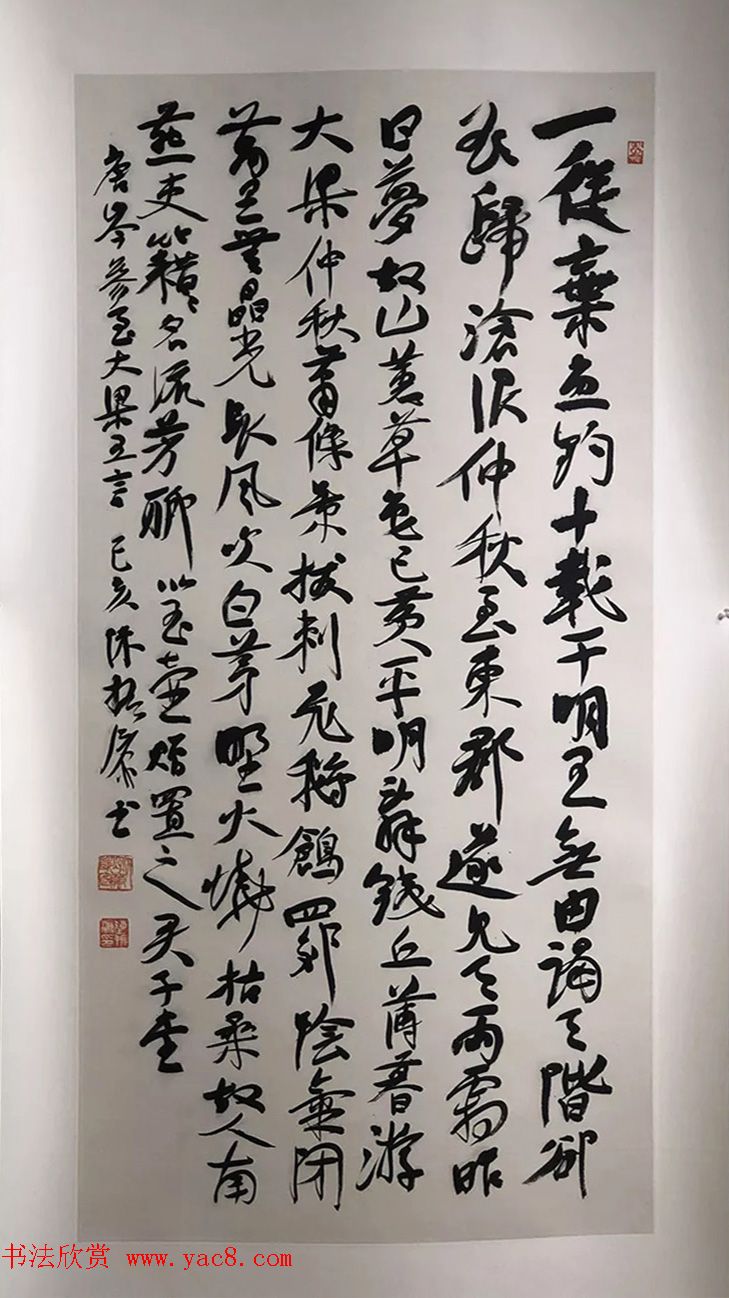 一從棄魚釣十載干明王無由謁天階卻
欲歸滄浪仲秋至東郡遂見天雨霜昨
日夢故山蕙草色已黃平明辭鐵丘薄暮游
大梁仲秋蕭條景拔刺飛鵝鶬四郊陰氣閉
萬里無晶光長風吹白茅野火燒枯桑故人南
燕吏籍々名流芳聊以玉壺贈置之君子堂
唐岑參至大梁五言 己亥 陳振濂書
书法欣赏 www.yac8.com